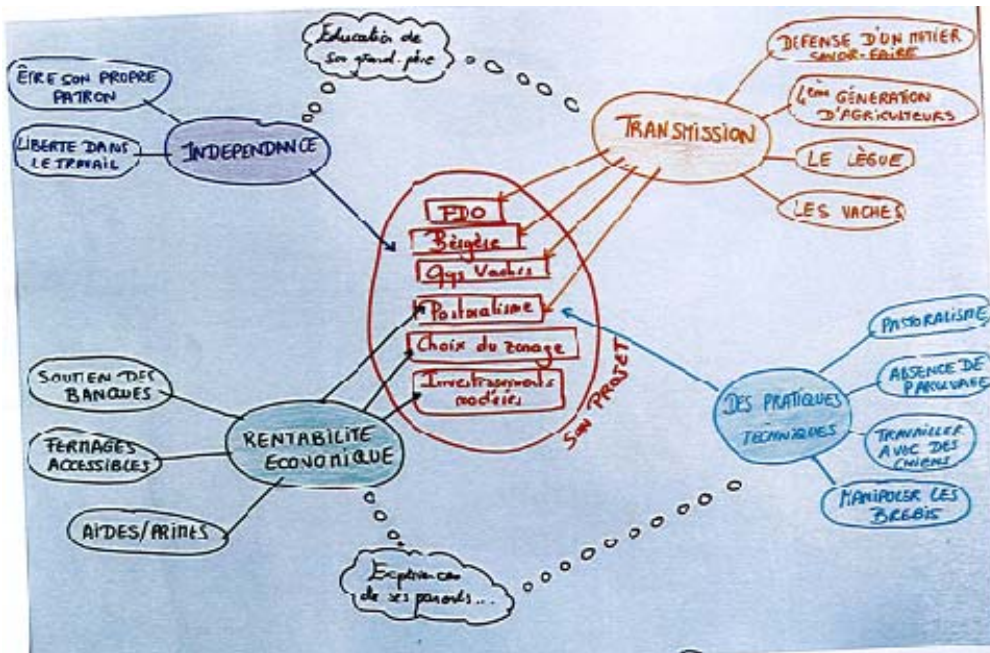 Éducation de
son grand-père
ÊTRE SON PROPRE
PATRON
LIBERTE DANS
LE TRAVAIL
INDEPENDANCE
TRANSMISSION
DEFENSE D'UN METIER
SAVOIR-FAIRE
4ème GÉNÉRATION
D'AGRICULTEURS
LE LÈGUE
LES VACHES
Bergère
Qqs Vaches
Pastoralisme
Choix du zonage
Investissements
modérés
SON PROJET
SOUTIEN DES
BANQUES
FERMAGES
ACCESSIBLES
AIDES/PRIMES
RENTABILITE
ECONOMIQUE
DES PRATIQUES
TECHNIQUES
PASTORALISME
ABSENCE DE
TRAVAILLER
AVEC DES
CHIENS
MANIPULER LES
BREBIS
Expériences
de ses parents...